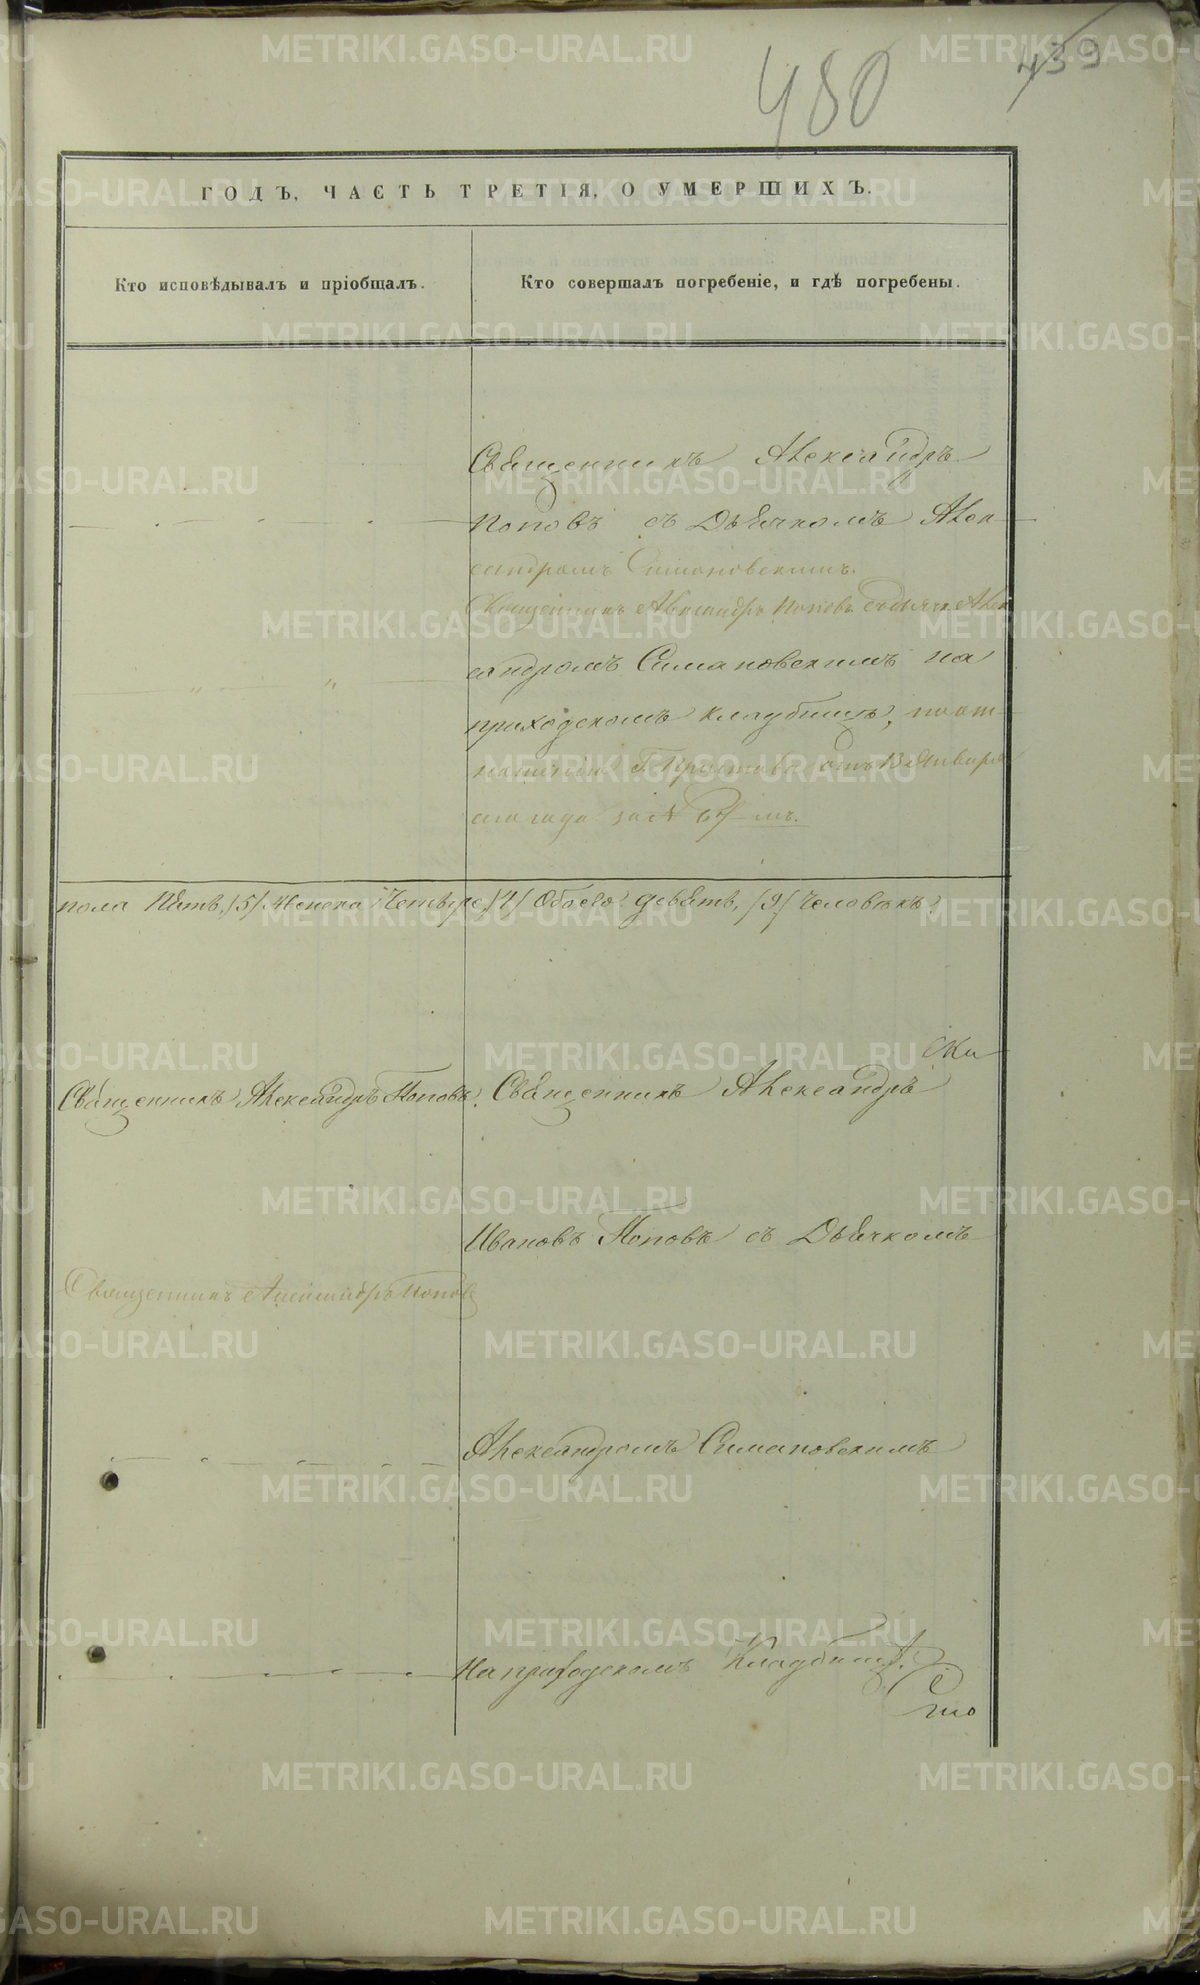 480
439
ГОДЪ, ЧАСТЬ ТРЕТІЯ, О УМЕРШИХЪ.
Кто исповѣдывалъ и пріобщалъ.
Кто совершалъ погребеніе, и гдѣ погребены.
Священникъ Александръ
Поповъ съ Дьячкомъ Алек-
сандромъ Симановскимъ.
Священникъ Александръ Поповъ съ дьячк Алек
сандромъ Симановскимъ на
приходскомъ кладбищѣ, по от-
ношенію Г. Пристава отъ 13 Января
сего года за №
пола Пять, /5/ Женска Четыре /4/ Обоего девять, /9/ Человѣкъ.
Священникъ Александръ Поповъ.
Священникъ Александръ
Ивановъ Поповъ съ Дьячкомъ
Священникъ Александръ Поповъ
Александромъ Симановскимъ
На приходскомъ Кладбищѣ.
METRIKI.GASO-URAL.RU